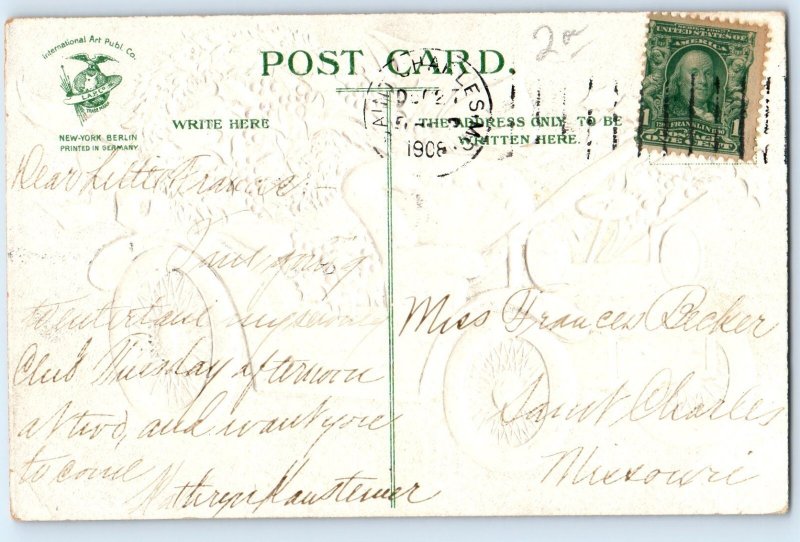 International Art Publ. Co.
NEW-YORK BERLIN
PRINTED IN GERMANY
POST CARD.
20
WRITE HERE
THE ADDRESS ONLY TO BE
WRITTEN HERE.
CHARLES, MO.
1908
UNITED STATES OF
AMERICA
1 FRANKLIN 1
ONE CENT
Dear Little Frances:—
I am going
to entertain my sewing
Club Tuesday afternoon
at two, and want you
to come
Kathryn
Miss Frances Becker
Saint Charles
Missouri